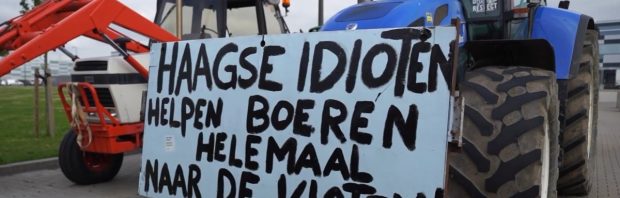 HAAGSE IDIOTEN
HELPEN BOEREN
HELEMAAL
NAAR DE